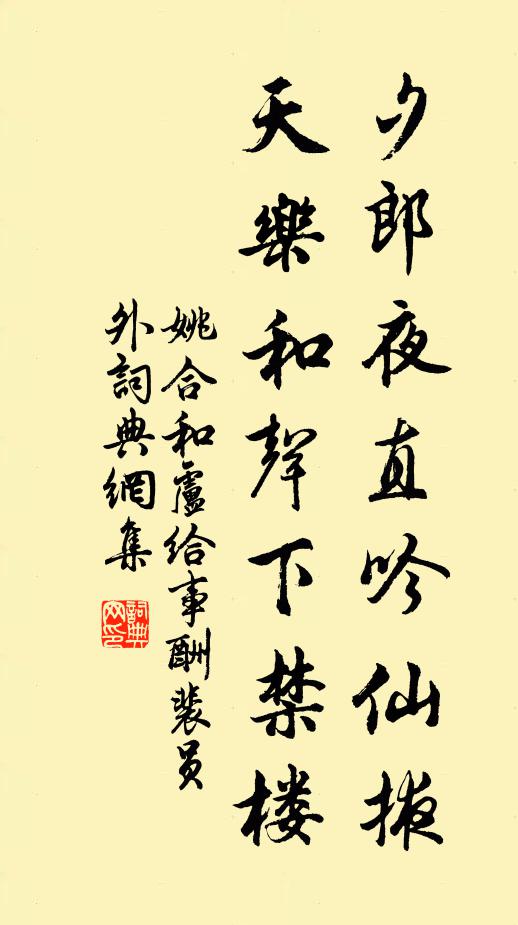 夕郎夜直吟仙掖
天樂和聲下禁楼
姚合和盧给事酬裴员
外詞典網集
詞典网印